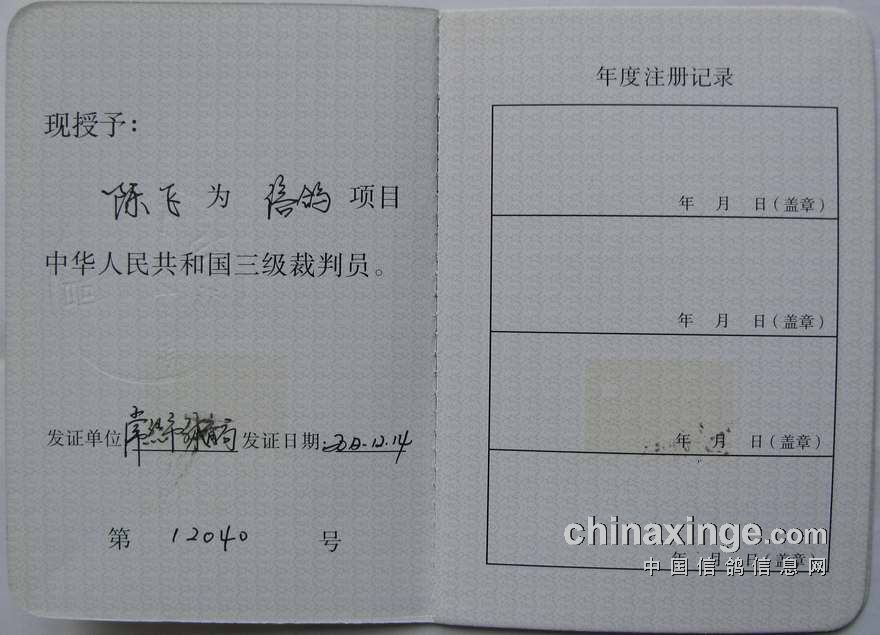 现授予：
陈飞 为 信鸽 项目
中华人民共和国三级裁判员。
发证单位 常熟市 发证日期: .12.14
第 12040 号
年度注册记录
年 月 日（盖章）
年 月 日（盖章）
年 月 日（盖章）
年 月 日（盖章）
chinaxinge.com
中国信鸽信息网